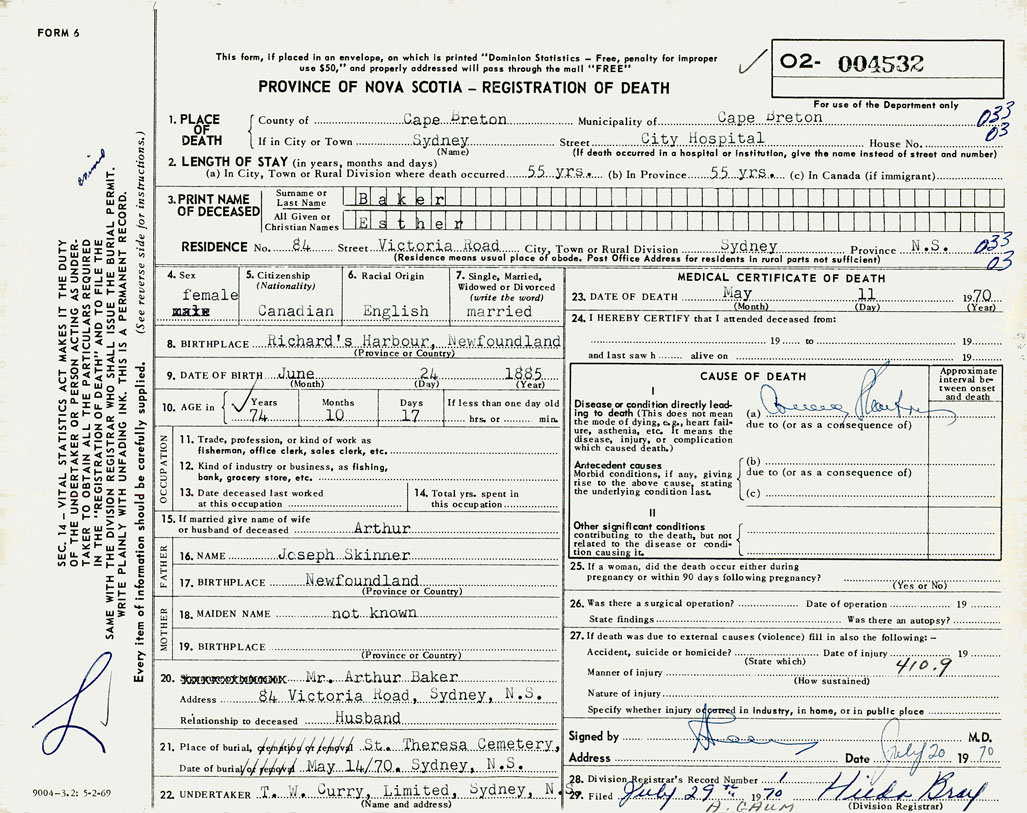 FORM 6
This form, if placed in an envelope, on which is printed "Dominion Statistics – Free, penalty for improper
use $50," and properly addressed will pass through the mail "FREE"
PROVINCE OF NOVA SCOTIA – REGISTRATION OF DEATH
02- 004532
For use of the Department only
1. PLACE OF DEATH
County of Cape Breton Municipality of Cape Breton 033
If in City or Town Sydney Street City Hospital House No. 03
(Name) (If death occurred in a hospital or institution, give the name instead of street and number)
2. LENGTH OF STAY (in years, months and days)
(a) In City, Town or Rural Division where death occurred 55 yrs. (b) In Province 55 yrs. (c) In Canada (if immigrant)
3. PRINT NAME OF DECEASED
Surname or Last Name Baker
All Given or Christian Names Esther
RESIDENCE No. 84 Street Victoria Road City, Town or Rural Division Sydney Province N.S. 033
(Residence means usual place of abode. Post Office Address for residents in rural parts not sufficient) 03
4. Sex
female
male
5. Citizenship
(Nationality)
Canadian
6. Racial Origin
English
7. Single, Married,
Widowed or Divorced
(write the word)
married
8. BIRTHPLACE Richard's Harbour, Newfoundland
(Province or Country)
9. DATE OF BIRTH June 24 1885
(Month) (Day) (Year)
10. AGE in Years Months Days If less than one day old
74 10 17 hrs. or min.
OCCUPATION
11. Trade, profession, or kind of work as
fisherman, office clerk, sales clerk, etc.
12. Kind of industry or business, as fishing,
bank, grocery store, etc.
13. Date deceased last worked
at this occupation
14. Total yrs. spent in
this occupation
15. If married give name of wife
or husband of deceased Arthur
FATHER
16. NAME Joseph Skinner
17. BIRTHPLACE Newfoundland
(Province or Country)
MOTHER
18. MAIDEN NAME not known
19. BIRTHPLACE
(Province or Country)
20. Mr. Arthur Baker
Address 84 Victoria Road, Sydney, N.S.
Relationship to deceased Husband
21. Place of burial, cremation or removal St. Theresa Cemetery,
Date of burial or removal May 14/70. Sydney, N.S.
22. UNDERTAKER T. W. Curry, Limited, Sydney, N.S.
(Name and address)
MEDICAL CERTIFICATE OF DEATH
23. DATE OF DEATH May 11 1970
(Month) (Day) (Year)
24. I HEREBY CERTIFY that I attended deceased from:
19 to 19
and last saw h alive on 19
CAUSE OF DEATH
Approximate
interval be-
tween onset
and death
I
Disease or condition directly lead-
ing to death (This does not mean
the mode of dying, e.g., heart fail-
ure, asthenia, etc. It means the
disease, injury, or complication
which caused death.)
(a)
due to (or as a consequence of)
Antecedent causes
Morbid conditions, if any, giving
rise to the above cause, stating
the underlying condition last.
(b)
due to (or as a consequence of)
(c)
II
Other significant conditions
contributing to the death, but not
related to the disease or condi-
tion causing it.
25. If a woman, did the death occur either during
pregnancy or within 90 days following pregnancy?
(Yes or No)
26. Was there a surgical operation? Date of operation 19
State findings Was there an autopsy?
27. If death was due to external causes (violence) fill in also the following: –
Accident, suicide or homicide? Date of injury 19
(State which)
Manner of injury 410.9
(How sustained)
Nature of injury
Specify whether injury occurred in industry, in home, or in public place
Signed by M.D.
Address Date July 20 1970
28. Division Registrar's Record Number 1
29. Filed July 29th 1970 Hilda Bray
A. GAUM (Division Registrar)
SEC. 14 – VITAL STATISTICS ACT MAKES IT THE DUTY
OF THE UNDERTAKER OR PERSON ACTING AS UNDER-
TAKER TO OBTAIN ALL THE PARTICULARS REQUIRED
IN THE "REGISTRATION OF DEATH" AND TO FILE THE
SAME WITH THE DIVISION REGISTRAR WHO SHALL ISSUE THE BURIAL PERMIT.
WRITE PLAINLY WITH UNFADING INK. THIS IS A PERMANENT RECORD.
Every item of information should be carefully supplied. (See reverse side for instructions.)
9004-3.2: 5-2-69